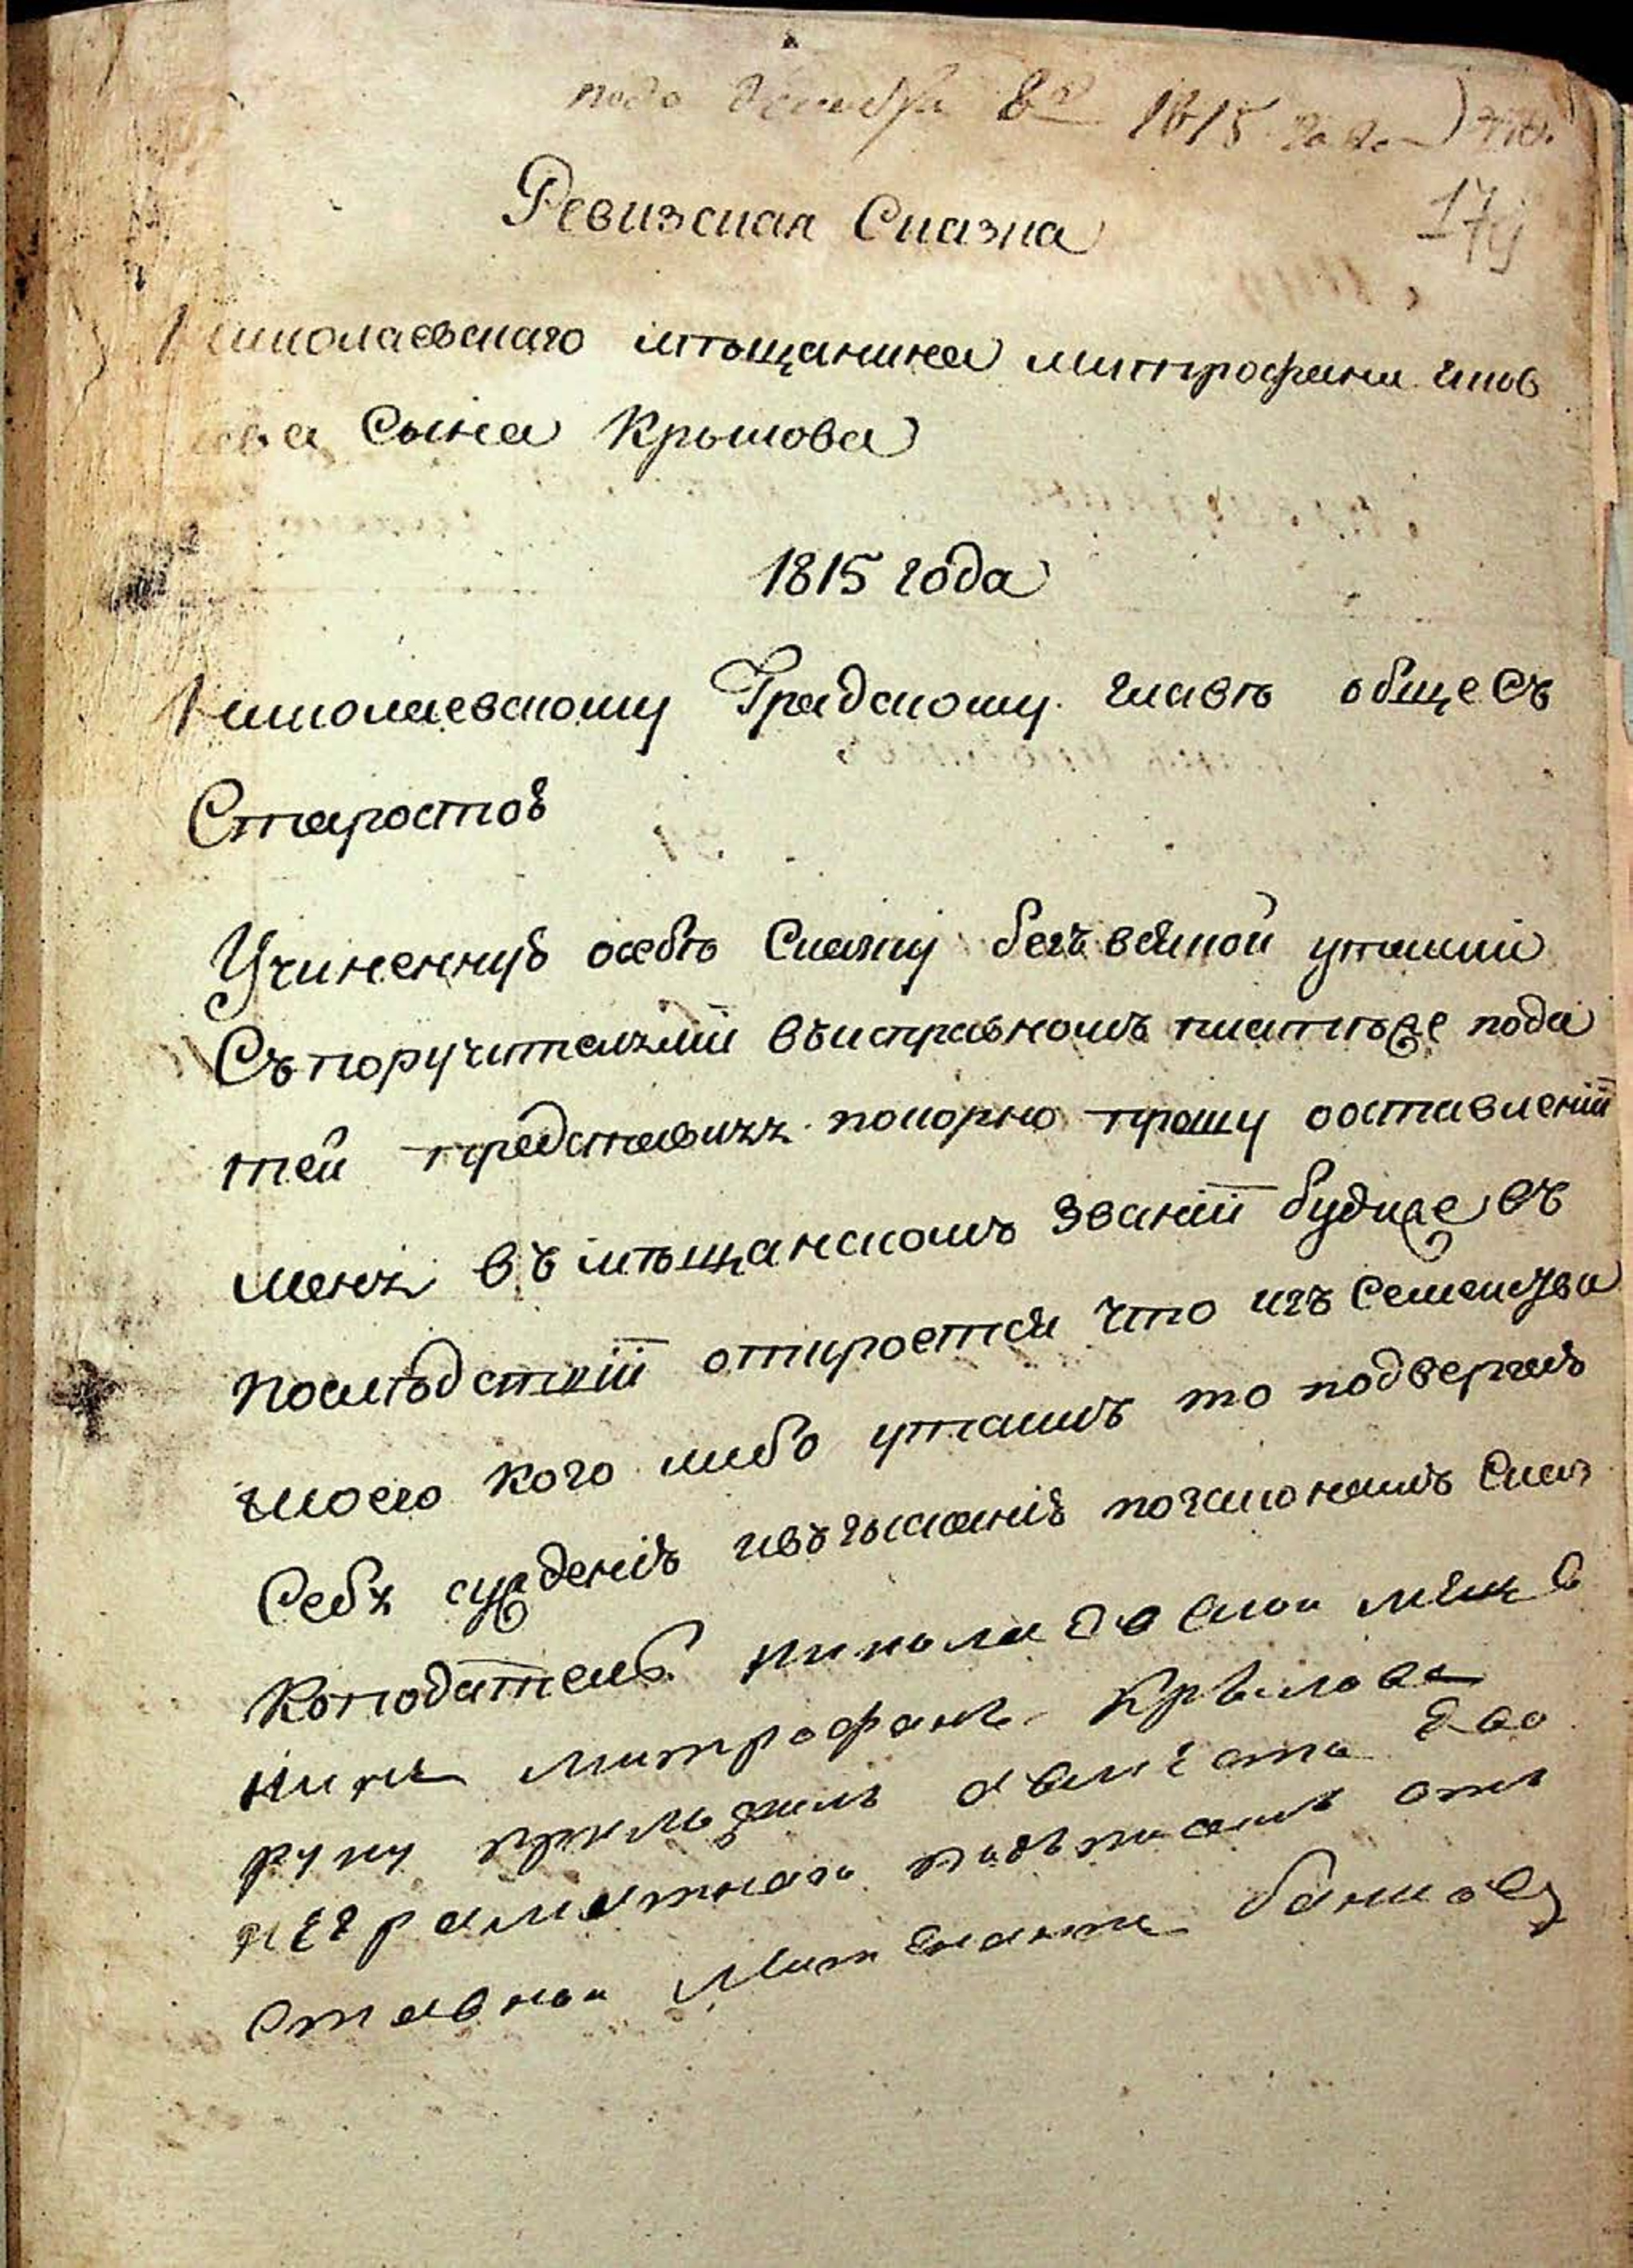 пода декабря 8го 1815 года
Ревизская Сказка
Николаевскаго мѣщанина митрофана яков
лева Сына Крылова
1815 года
Николаевскому Градскому главѣ общесъ
Старостою
Учиненную осебѣ Сказку безъ всякой утайки
Съпоручителями въисправномъ платежѣ пода
тей представляя покорно прошу оставленіи
меня въ мѣщанскомъ званіи будеже въ
послѣдствіи откроется что изъ Семейства
моего кого либо утаилъ то подвергаю
Себя сужденію ивзысканію позаконамъ Сказ
коподатель николаевской меще
нинъ митрофанъ Крылова
руку приложилъ
неграматнаго подъписалъ отъ
ставной